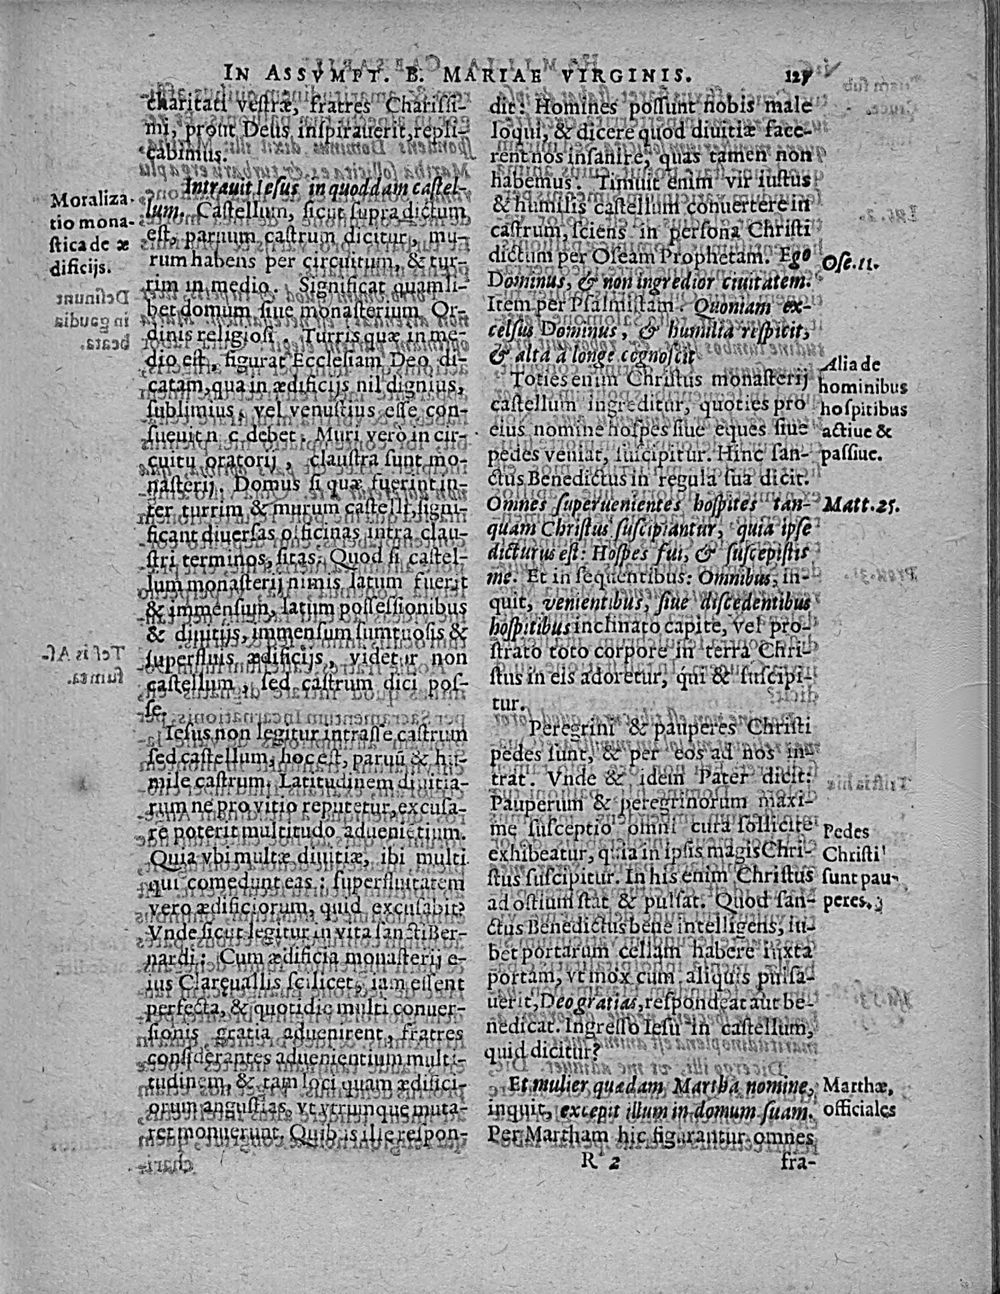 IN ASSVMPT. B. MARIAE VIRGINIS. 127
charitati vestræ, fratres Charissi-
mi, prout Deus inspirauerit, repli-
cabimus.
Intrauit Iesus in quoddam castel-
lum, Castellum, sicut supra dictum
est, paruum castrum dicitur, mu-
rum habens per circuitum, & tur-
rim in medio. Significat quamli-
bet domum siue monasterium Or-
dinis religiosi. Turris quæ in me-
dio est, figurat Ecclesiam Deo di-
catam, qua in ædificijs nil dignius,
sublimius, vel venustius esse con-
sueuit n c debet. Muri verò in cir-
cuitu oratorij, claustra sunt mo-
nasterij. Domus si quæ fuerint in-
ter turrim & murum castelli, signi-
ficant diuersas officinas intra clau-
stri terminos, sitas. Quod si castel-
lum monasterij nimis latum fuerit
& immensum, latum possessionibus
& diuitijs, immensum sumtuosis &
superfluis ædificijs, videtur non
castellum, sed castrum dici pos-
se.
Iesus non legitur intrasse castrum
sed castellum, hoc est, paruū & hu-
mile castrum. Latitudinem diuitia-
rum ne pro vitio reputetur, excusa-
re poterit multitudo aduenietium.
Quia vbi multæ diuitiæ, ibi multi
qui comedunt eas: superfluitatem
vero ædificiorum, quid excusabit?
Vnde sicut legitur in vita sancti Ber-
nardi: Cum ædificia monasterij e-
ius Clareuallis scilicet, iam essent
perfecta, & quotidie multi conuer-
sionis gratia aduenirent, fratres
considerantes aduenientium multi-
tudinem, & tam loci quam ædifici-
orum angustias, vt vtrumque muta-
ret monuerunt. Quibus ille respon-
Moraliza-
tio mona-
stica de æ
dificijs.
dit: Homines possunt nobis male
loqui, & dicere quod diuitiæ face-
rent nos insanire, quas tamen non
habemus. Timuit enim vir iustus
& humilis castellum conuertere in
castrum, sciens in persona Christi
dictum per Oseam Prophetam. Ego
Dominus, & non ingredior ciuitatem.
Item per Psalmistam. Quoniam ex-
celsus Dominus, & humilia respicit,
& alta à longe cognoscit
Toties enim Christus monasterij
castellum ingreditur, quoties pro
eius nomine hospes siue eques siue
pedes veniat, suscipitur. Hinc san-
ctus Benedictus in regula sua dicit.
Omnes superuenientes hospites tan-
quam Christus suscipiantur, quia ipse
dicturus est: Hospes fui, & suscepistis
me. Et in sequentibus: Omnibus, in-
quit, venientibus, siue discedentibus
hospitibus inclinato capite, vel pro-
strato toto corpore in terra Chri-
stus in eis adoretur, qui & suscipi-
tur.
Peregrini & pauperes Christi
pedes sunt, & per eos ad nos in-
trat. Vnde & idem Pater dicit:
Pauperum & peregrinorum maxi-
me susceptio omni cura sollicite
exhibeatur, quia in ipsis magis Chri-
stus suscipitur. In his enim Christus
ad ostium stat & pulsat. Quod san-
ctus Benedictus bene intelligens, iu-
bet portarum cellam habere iuxta
portam, vt mox cum aliquis pulsa-
uerit, Deo gratias, respondeat aut be-
nedicat. Ingresso Iesu in castellum,
quid dicitur?
Et mulier quædam Martha nomine,
inquit, excepit illum in domum suam.
Per Martham hic figurantur omnes
Ose. 11.
Alia de
hominibus
hospitibus
actiue &
passiue.
Matt. 25.
Pedes
Christi
sunt pau-
peres.
Marthæ,
officiales
R 2 fra-